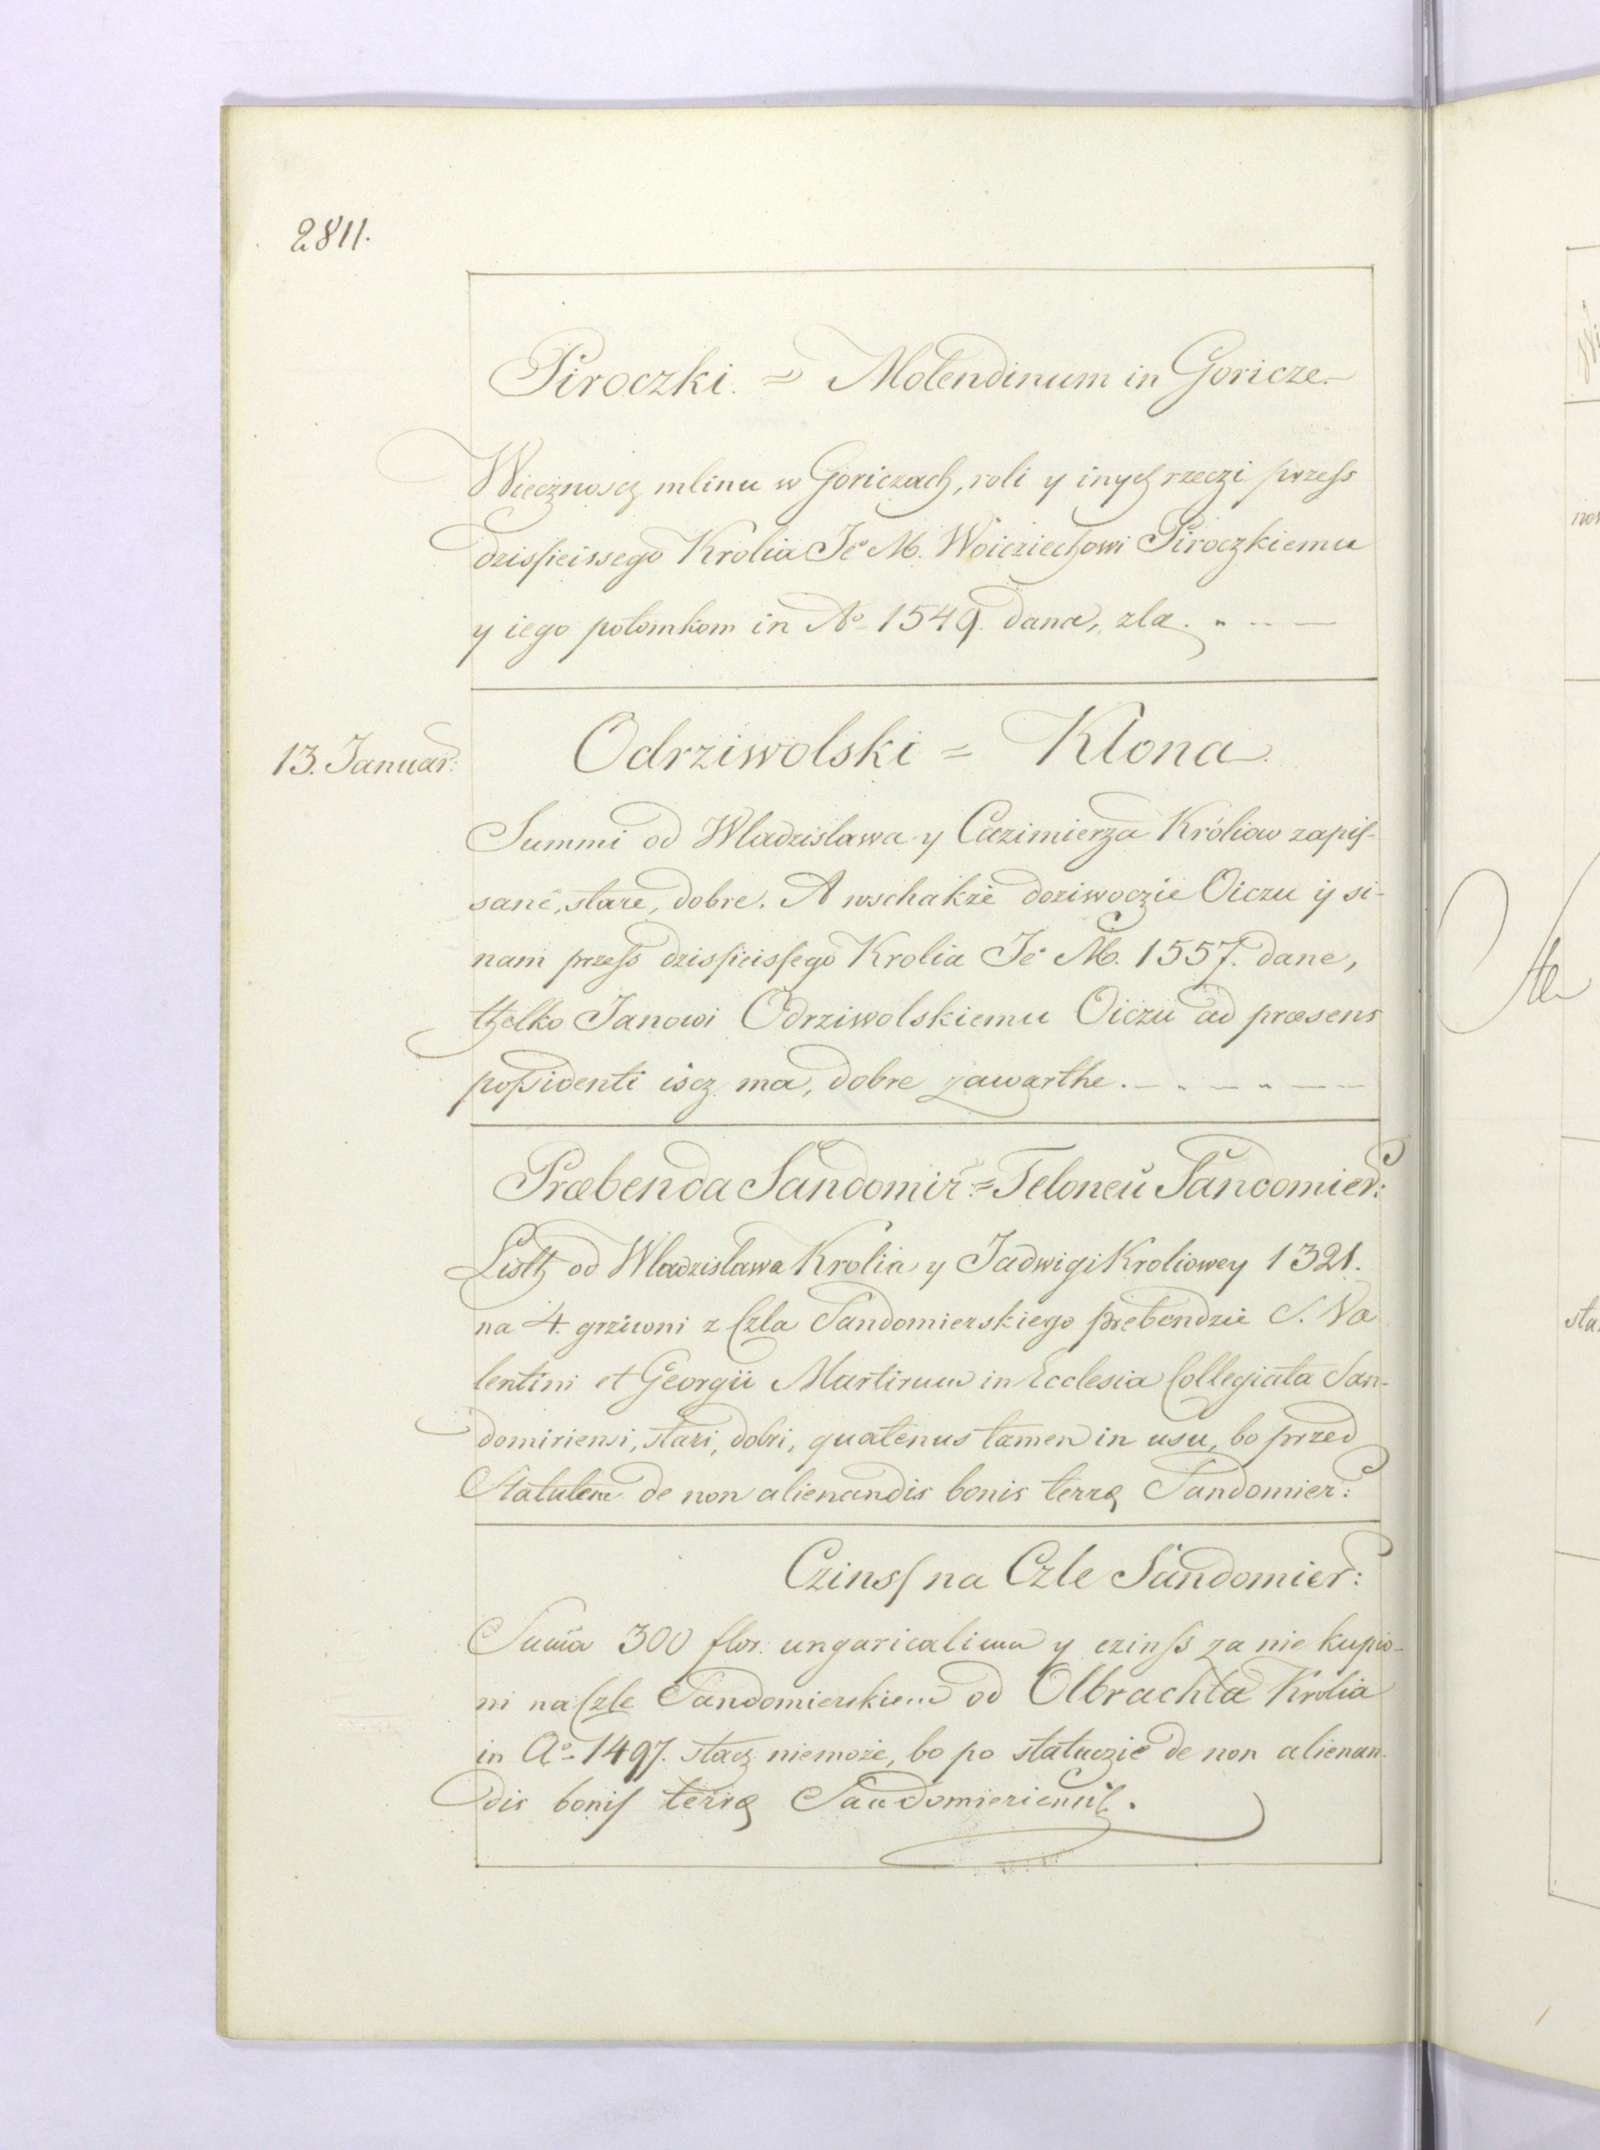 2811.
Piroczki. = Molendinum in Goricze.
Wiecznoscz mlinu w Goriczach, roli y inych rzeczi przess
dzissieissego Krolia Je° M. Woicziechowi Piroczkiemu
y iego potomkom in A° 1549. dana, zla.
13. Januar:
Odrziwolski = Klona.
Summi od Wladzislawa y Cazimierza Króliow zapis-
sané, stare, dobre. A wschakże doziwoczie Oiczu ÿ si-
nam przess dzissieissego Krolia Je° M. 1557. dane,
thelko Janowi Odrziwolskiemu Oiczu ad præsens
possidenti iscz ma, dobre zawarthe.
Præbenda Sandomir: = Teloneũ Sandomier:
Listh od Wladzislawa Krolia y Jadwigi Kroliowey 1321.
na 4. grziwni z Czla Sandomierskiego prebendzie S. Va
lentini et Georgii Martirum in Ecclesia Collegiata San-
domiriensi, stari, dobri, quatenus tamen in usu, bo przed
Statutem de non alienandis bonis terrę Sandomier:
Czinss na Czle Sandomier:
Suma 300 flor. ungaricalium y czinss za nie kupio-
ni na Czle Sandomierskiem od Olbrachta Krolia
in A° 1497. stacz niemoże, bo po statuczie de non alienan-
dis bonis terrę Sandomieriensis.